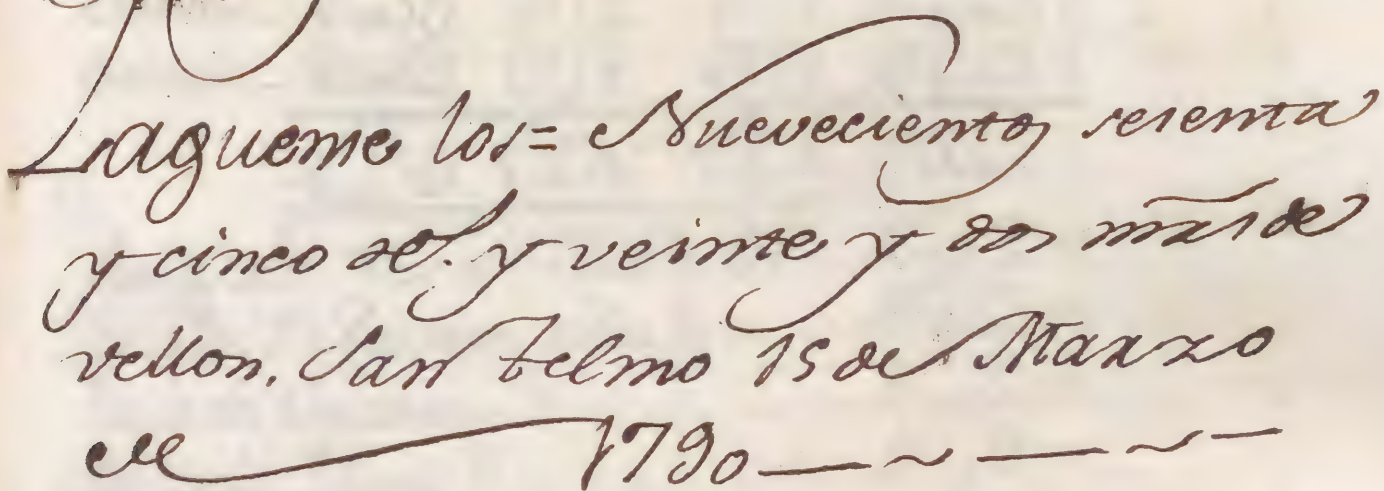 Pagueme los = Nuevecientos sesenta
y cinco rs. y veinte y dos mrs. de
vellon. San Telmo 15 de Marzo
de 1790